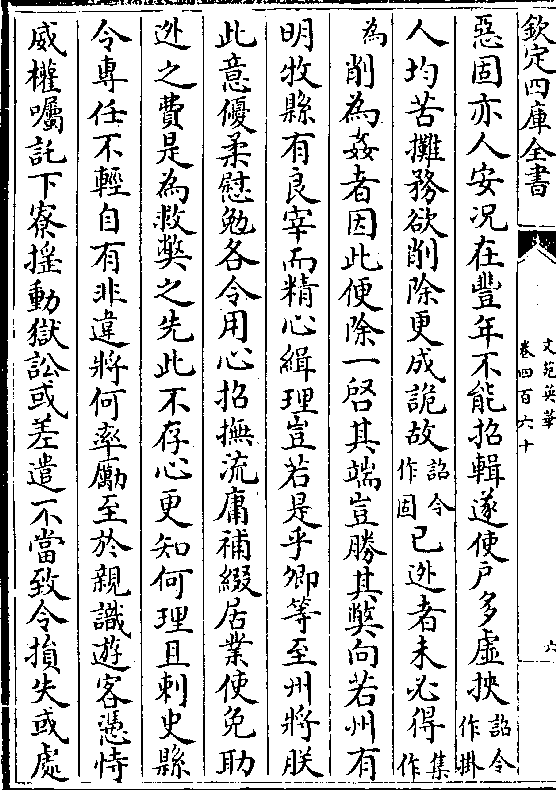 欽定四庫全書
文苑英華
卷四百六十
六
惡固亦人安况在豐年不能招輯遂使戶多虛抰詔令作掛
人均苦攤務欲削除更成詭故詔令作固已迯者未必得集作
為削為姦者因此便除一啓其端豈勝其獘向若州有
明牧縣有良宰而精心緝理豈若是乎卿等至州將朕
此意優柔慰勉各令用心招撫流庸補綴居業使免助
迯之費是為救獘之先此不存心更知何理且刺史縣
令專任不輕自有非違將何率勵至於親識遊客憑恃
威權囑託下寮揺動獄訟或差遣不當致令損失或處